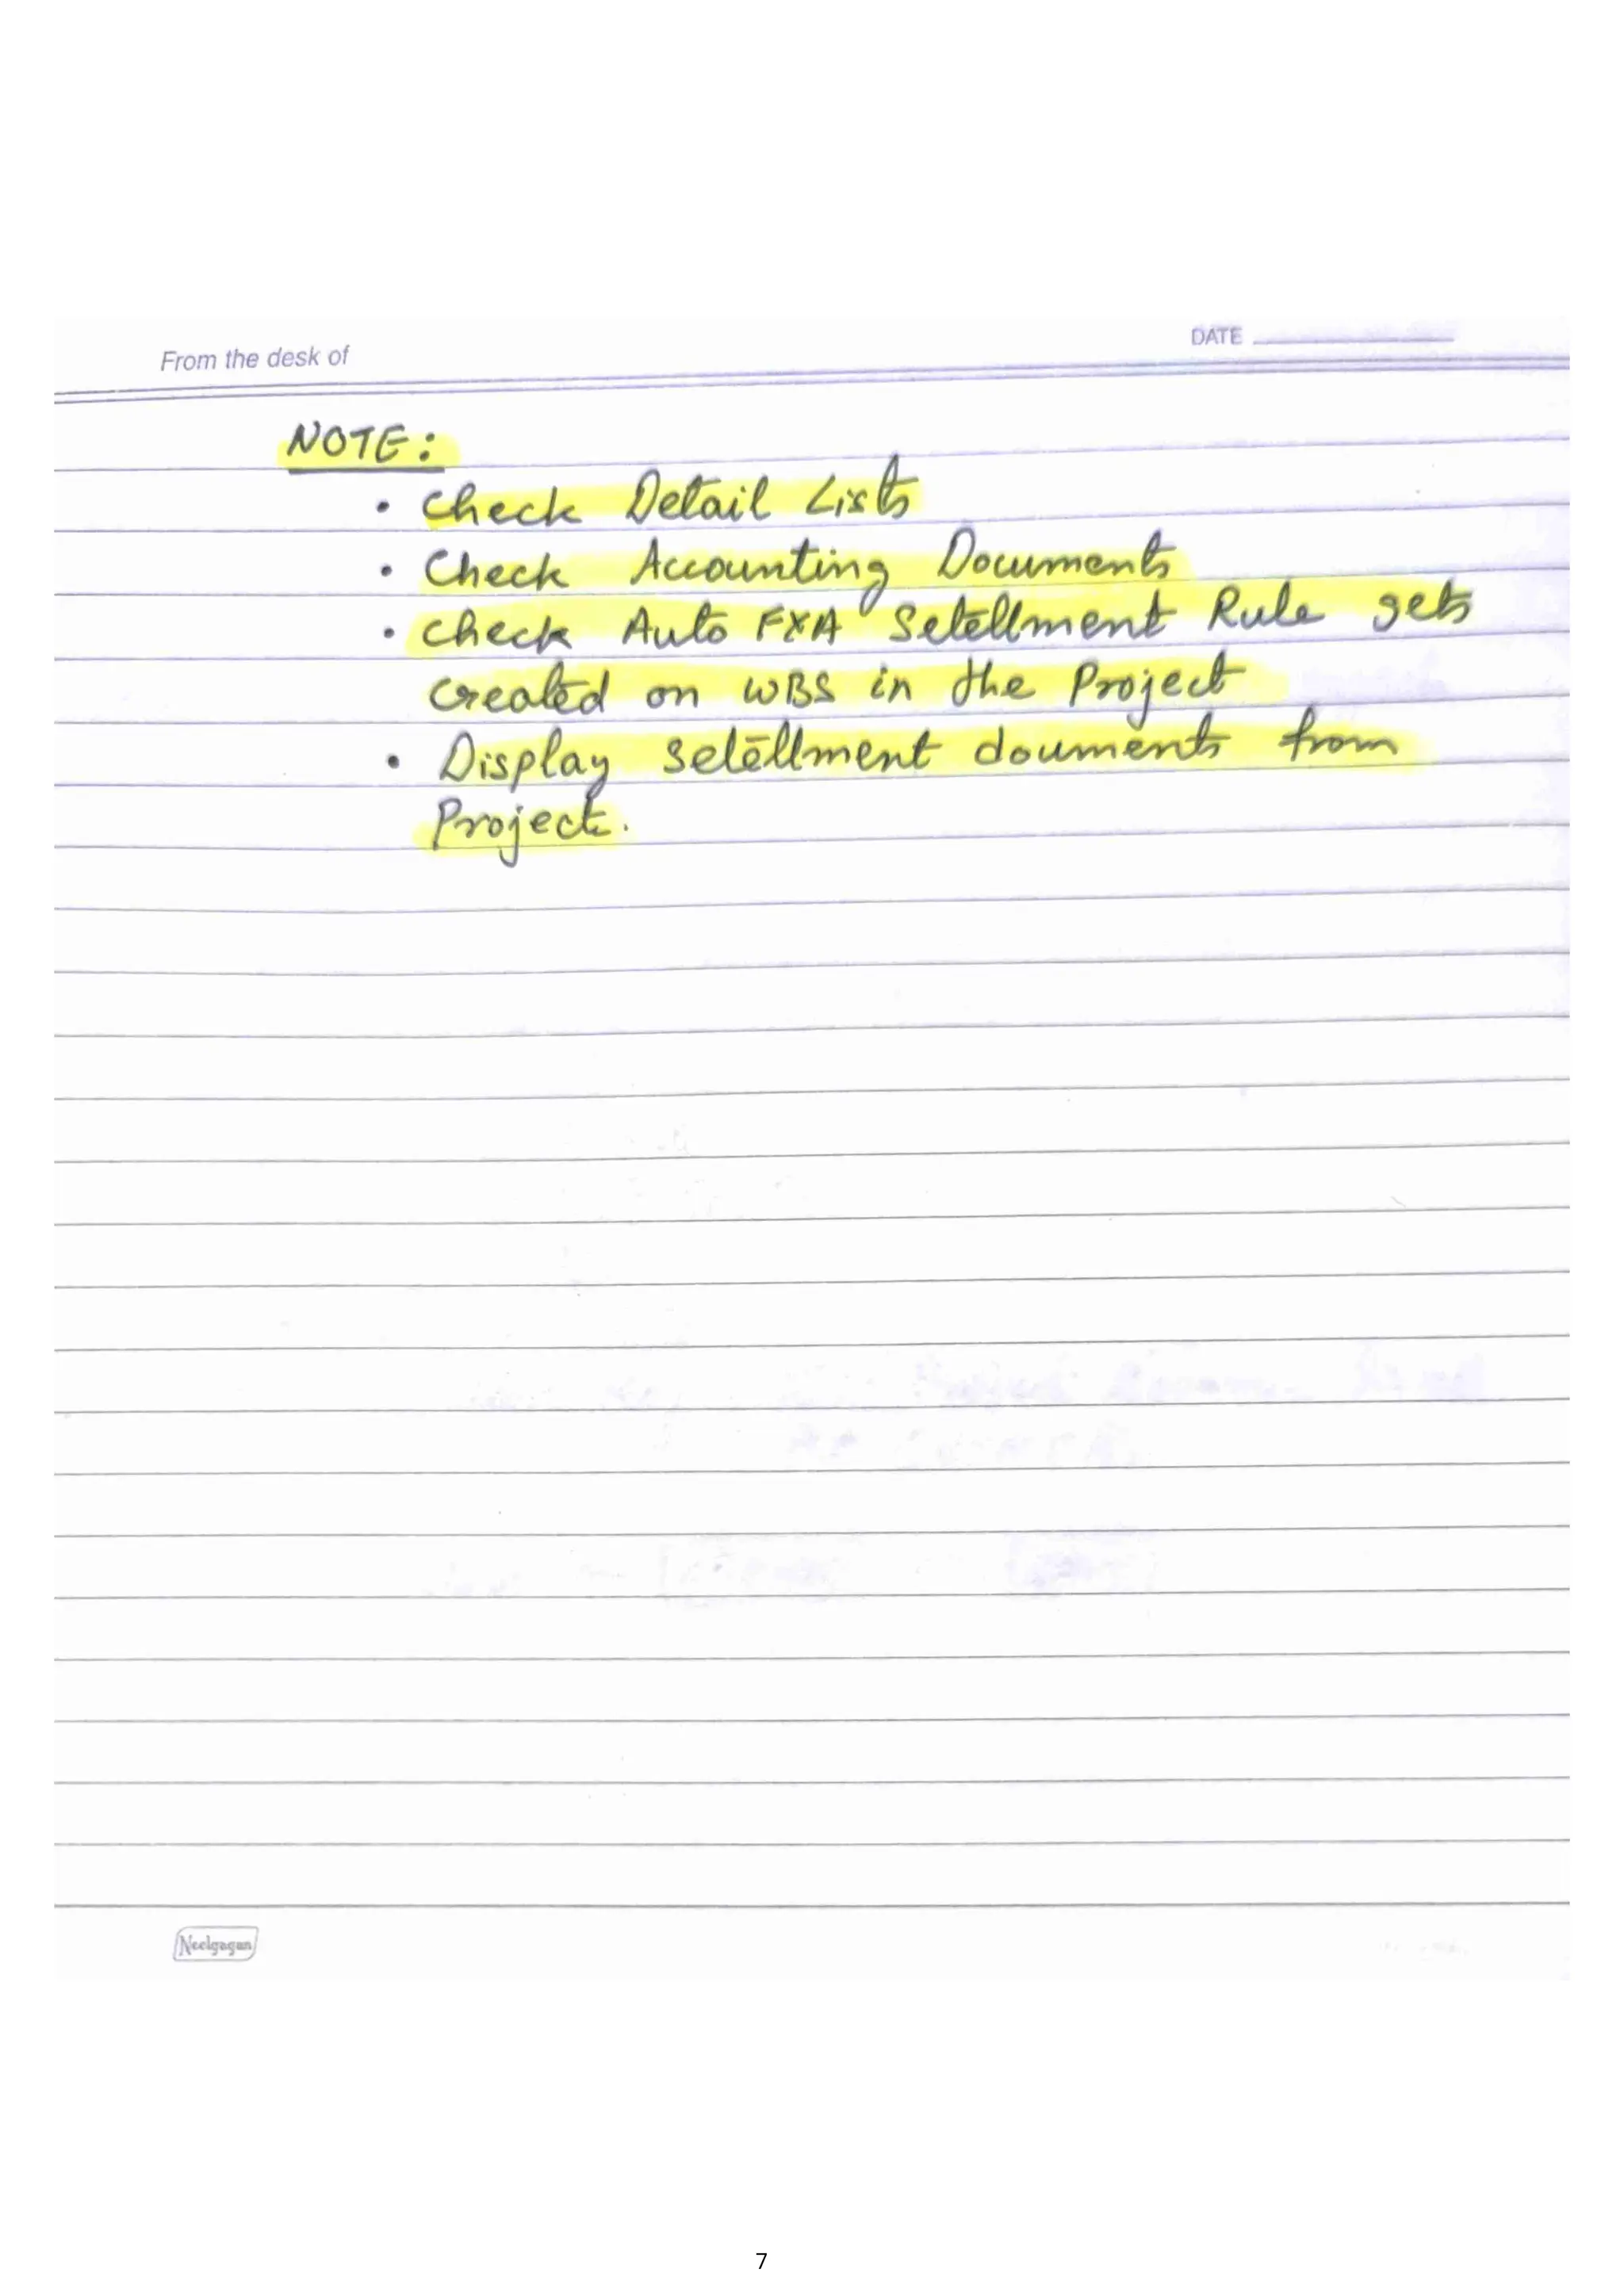 From the desk of
DATE
NOTE:
• Check Detail Lists
• Check Accounting Documents
• Check Auto FXA Setellment Rule gets
created on WBS in the Project
• Display setellment douments from
Project.
Neelgagan
7